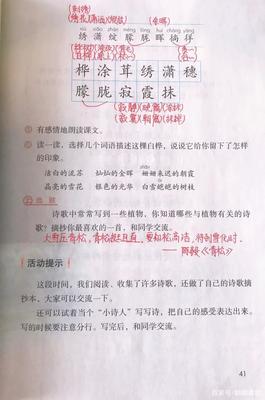 (刺绣)
(绣花)(潇洒)(绽放) (余晖)
xiù xiāo zhàn méng lóng huī cháng yáng
绣 潇 绽 朦 胧 晖 徜 徉
桦 涂 茸 绣 潇 穗
朦 胧 寂 霞 抹
(寂静)(晚霞)(涂抹)
(寂寞)(朝霞)(抹掉)
有感情地朗读课文。
读一读,选择几个词语描述这棵白桦,说说它给你留下了怎样
的印象。
洁白的流苏 灿灿的金晖 姗姗来迟的朝霞
晶亮的雪花 银色的光华 白雪皑皑的树枝
选做
诗歌中常常写到一些植物,你知道哪些与植物有关的诗
歌?摘抄你最喜欢的一首,和同学交流。
大雪压青松,青松挺且直。要知松高洁,待到雪化时。
——陈毅《青松》
活动提示
这段时间,我们阅读、收集了许多诗歌,还做了自己的诗歌摘
抄本,大家可以交流一下。
还可以试着当个“小诗人”写写诗,把自己的感受表达出来。
写的时候要注意分行。写完后,和同学交流。
41